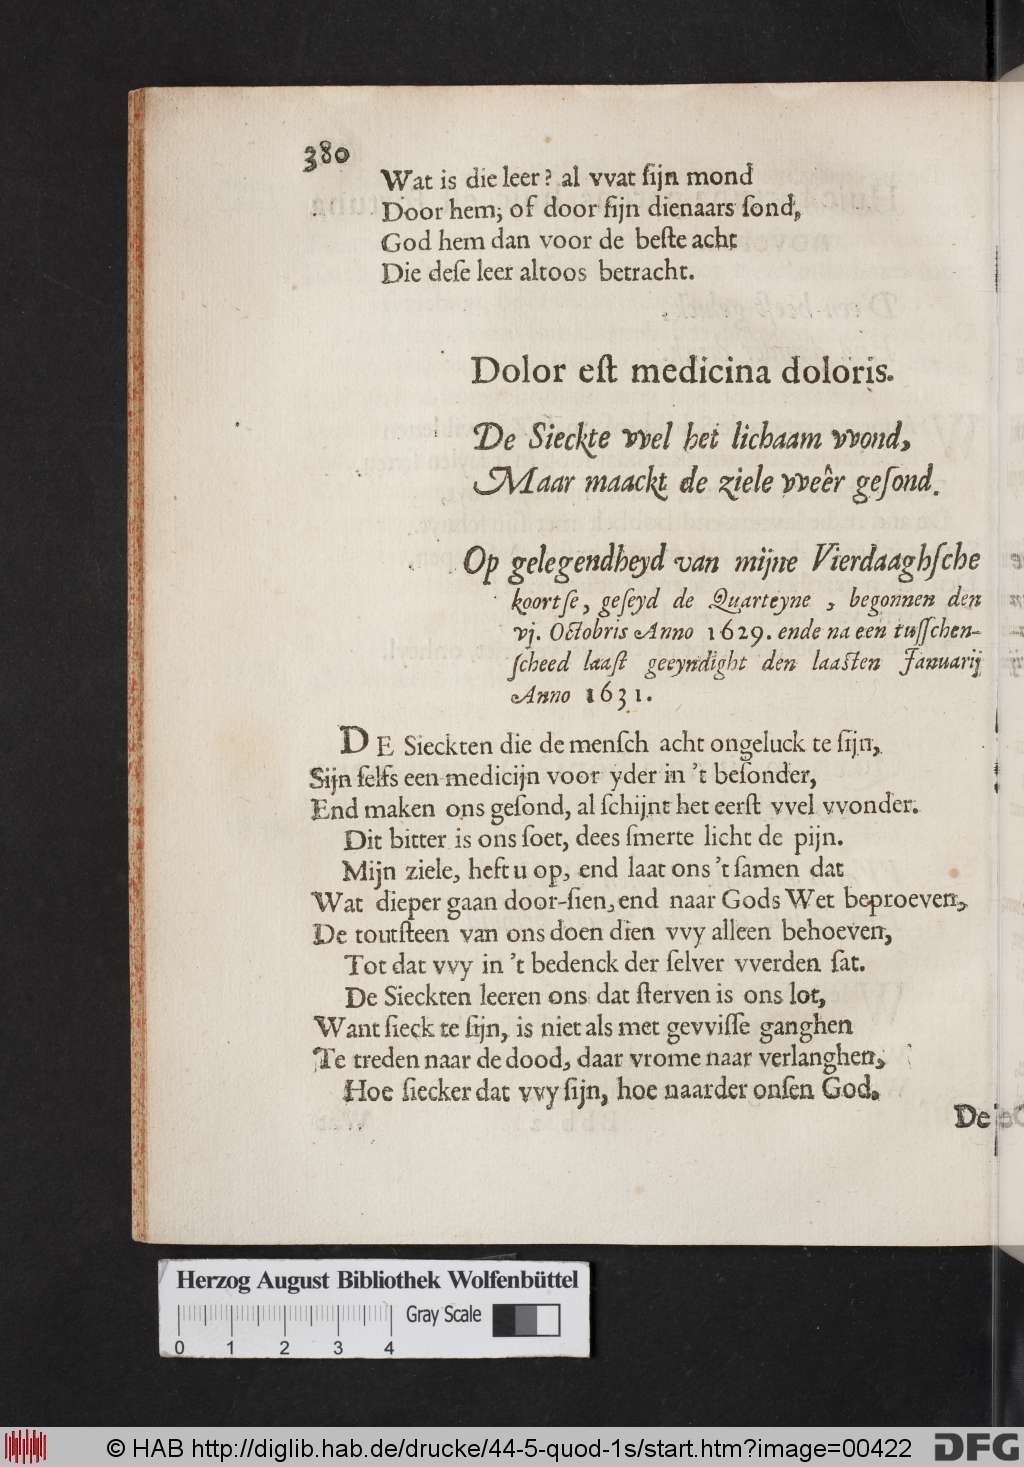 380
Wat is die leer? al vvat ſijn mond
Door hem, of door ſijn dienaars ſond,
God hem dan voor de beſte acht
Die deſe leer altoos betracht.
Dolor eſt medicina doloris.
De Sieckte vvel het lichaam vvond,
Maar maackt de ziele vveêr geſond.
Op gelegendheyd van mijne Vierdaaghſche
koortſe, geſeyd de Quarteyne, begonnen den
vj. Octobris Anno 1629. ende na een tuſſchen-
ſcheed laaſt geeyndight den laaſten Januarij
Anno 1631.
DE Sieckten die de menſch acht ongeluck te ſijn,
Sijn ſelfs een medicijn voor yder in 't beſonder,
End maken ons geſond, al ſchijnt het eerſt vvel vvonder.
Dit bitter is ons ſoet, dees ſmerte licht de pijn.
Mijn ziele, heft u op, end laat ons 't ſamen dat
Wat dieper gaan door-ſien, end naar Gods Wet beproeven,
De toutſteen van ons doen dien vvy alleen behoeven,
Tot dat vvy in 't bedenck der ſelver vverden ſat.
De Sieckten leeren ons dat ſterven is ons lot,
Want ſieck te ſijn, is niet als met gevviſſe ganghen
Te treden naar de dood, daar vrome naar verlanghen,
Hoe ſiecker dat vvy ſijn, hoe naarder onſen God.
De
Herzog August Bibliothek Wolfenbüttel
Gray Scale
0 1 2 3 4
© HAB http://diglib.hab.de/drucke/44-5-quod-1s/start.htm?image=00422
DFG